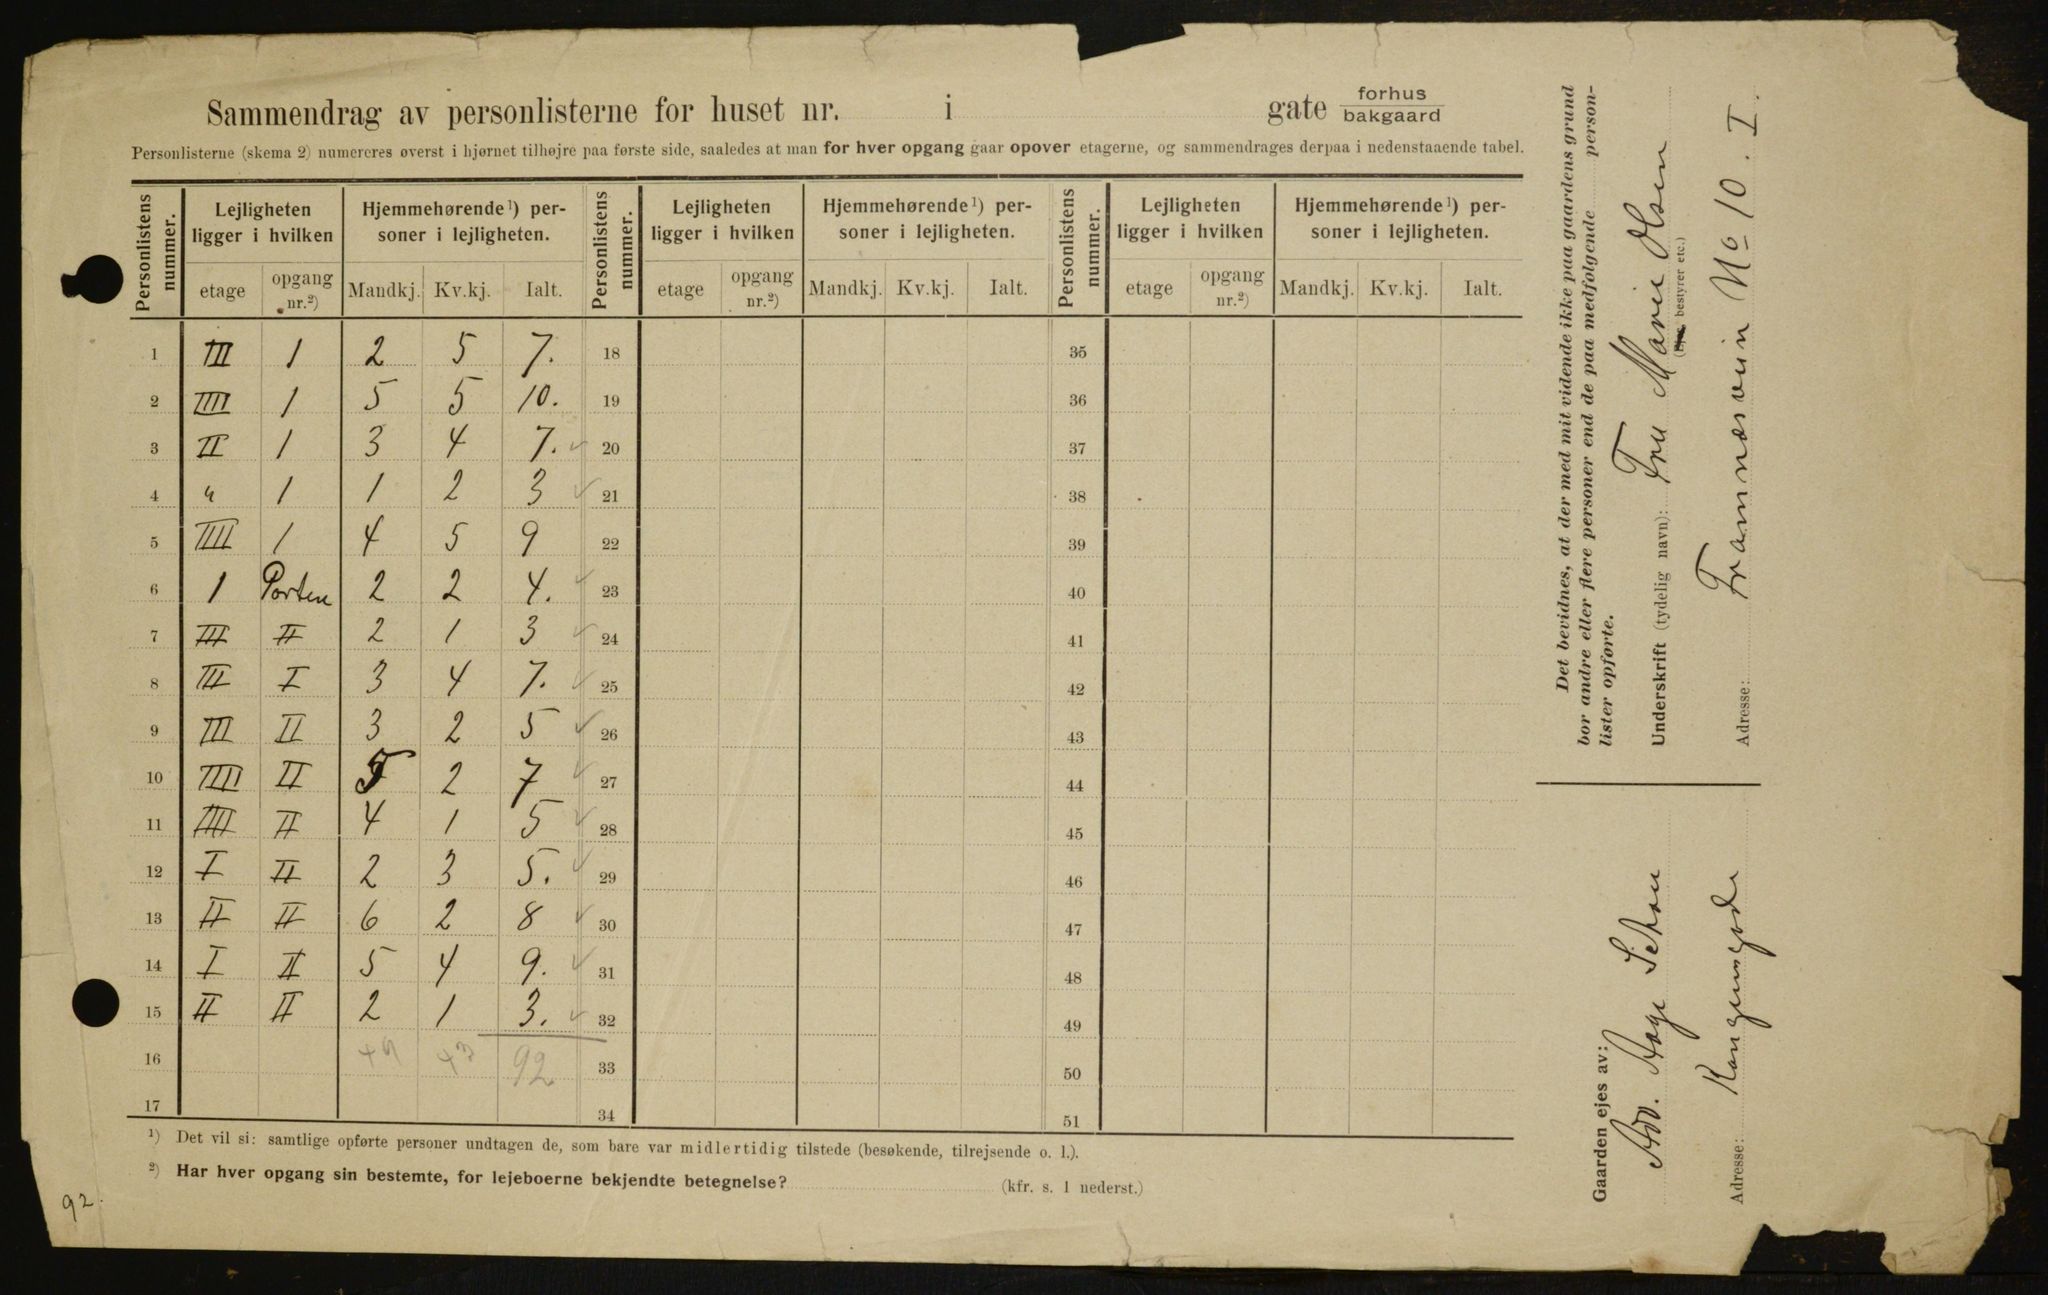 Sammendrag av personlisterne for huset nr. i gate forhus
bakgaard
Personlisterne (skema 2) numereres øverst i hjørnet tilhøjre paa første side, saaledes at man for hver opgang gaar opover etagerne, og sammendrages derpaa i nedenstaaende tabel.
Personlistens nummer. Lejligheten ligger i hvilken Hjemmehørende ¹) personer i lejligheten. Personlistens nummer. Lejligheten ligger i hvilken Hjemmehørende ¹) personer i lejligheten. Personlistens nummer. Lejligheten ligger i hvilken Hjemmehørende ¹) personer i lejligheten.
etage opgang nr.²) Mandkj. Kv.kj. Ialt. etage opgang nr.²) Mandkj. Kv.kj. Ialt. etage opgang nr.²) Mandkj. Kv.kj. Ialt.
1 III 1 2 5 7. 18 35
2 IIII 1 5 5 10. 19 36
3 II 1 3 4 7. ✓ 20 37
4 " 1 1 2 3 ✓ 21 38
5 IIII 1 4 5 9 22 39
6 1 Porten 2 2 4. ✓ 23 40
7 III II 2 1 3 ✓ 24 41
8 III I 3 4 7. ✓ 25 42
9 III II 3 2 5 ✓ 26 43
10 IIII II 5 2 7 ✓ 27 44
11 IIII II 4 1 5 ✓ 28 45
12 I II 2 3 5. ✓ 29 46
13 II II 6 2 8 ✓ 30 47
14 I II 5 4 9. ✓ 31 48
15 II II 2 1 3. ✓ 32 49
16 49 43 92 33 50
17 34 51
¹) Det vil si: samtlige opførte personer undtagen de, som bare var midlertidig tilstede (besøkende, tilrejsende o. l.).
²) Har hver opgang sin bestemte, for lejeboerne bekjendte betegnelse? (kfr. s. 1 nederst.)
92.
Det bevidnes, at der med mit vidende ikke paa gaardens grund
bor andre eller flere personer end de paa medfølgende person-
lister opførte.
Underskrift (tydelig navn): Fru Marie Olsen
bestyrer etc.)
Adresse: Framnæsvein No 10. I.
Gaarden ejes av:
Adv. Aage Schou
Adresse: